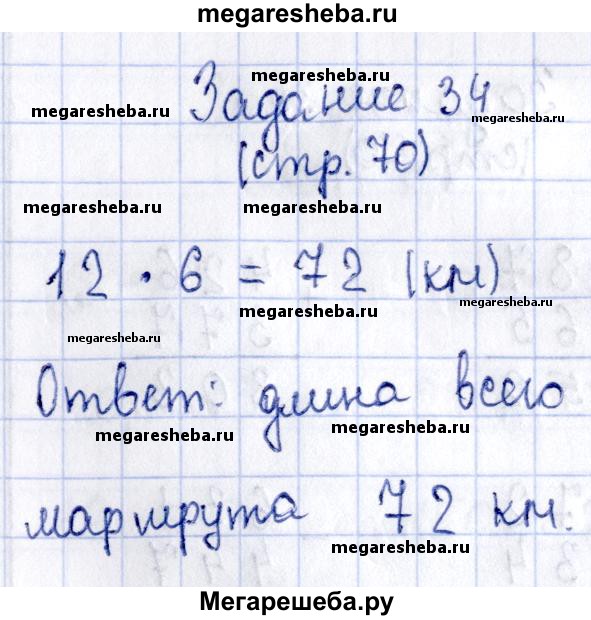 megaresheba.ru
megaresheba.ru
megaresheba.ru
Задание 34
megaresheba.ru
(стр. 70)
megaresheba.ru megaresheba.ru
12 · 6 = 72 (км)
megaresheba.ru
megaresheba.ru
megaresheba.ru
Ответ: длина всего
megaresheba.ru megaresheba.ru
маршрута 72 км.
megaresheba.ru
Мегарешеба.ру